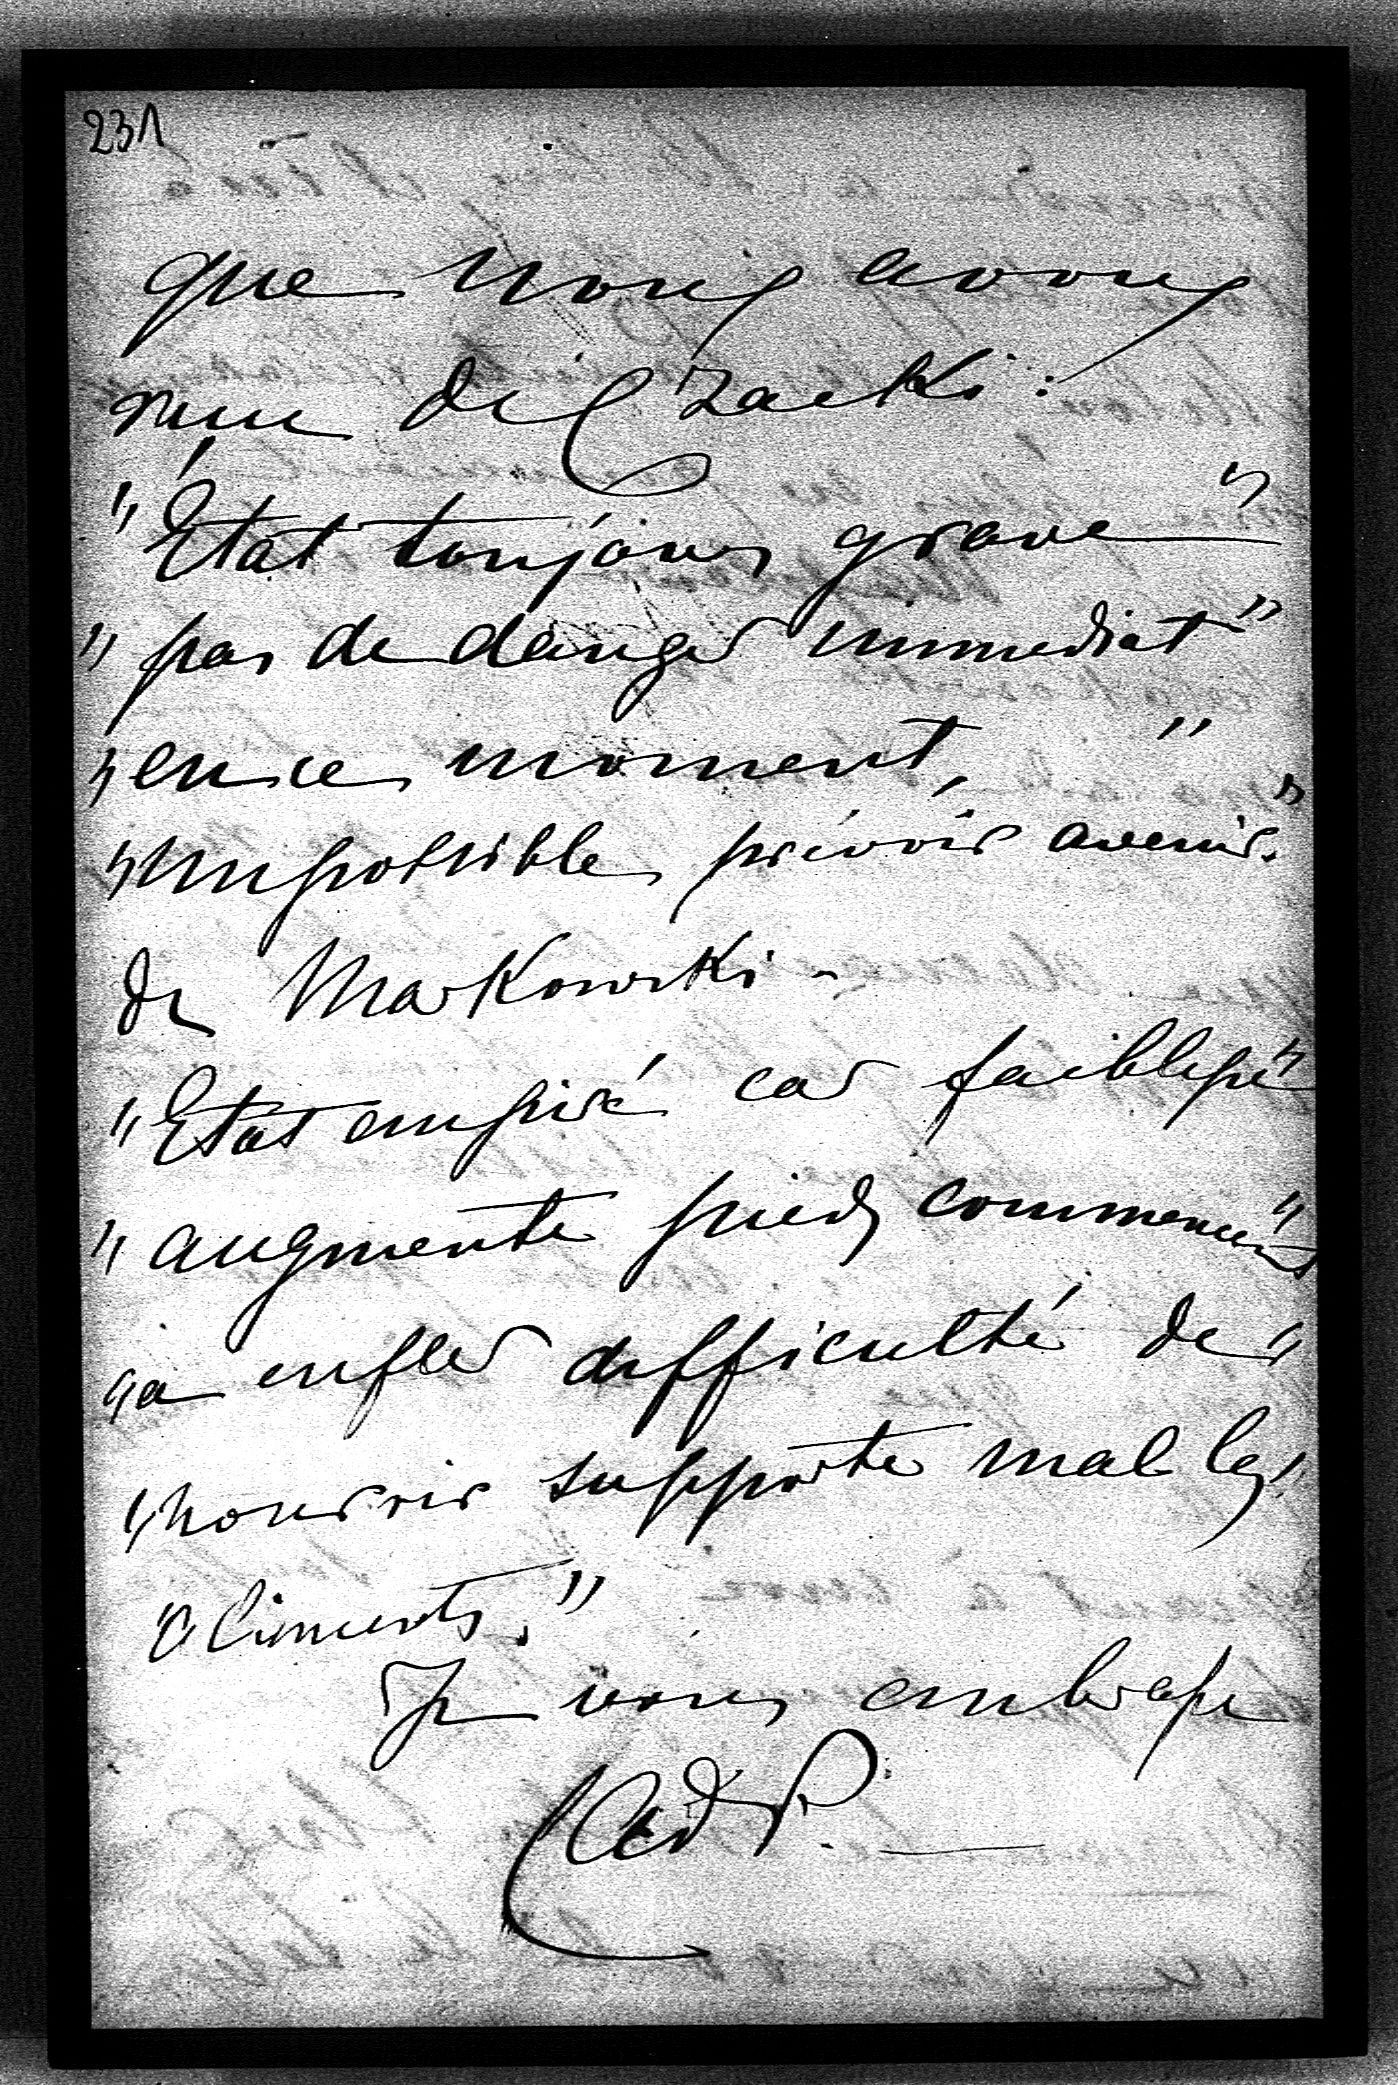 231
que nous avons
reçu de Czacki :
"État toujours grave"
"pas de danger immediat"
"en ce moment, "
"impossible prévoir avenir."
de Markowski -
"Etat empiré car faiblesse"
"augmente pieds commencent"
"à enfler difficulté de"
"nourrir supporte mal les"
"aliments."
Je vous embrasse